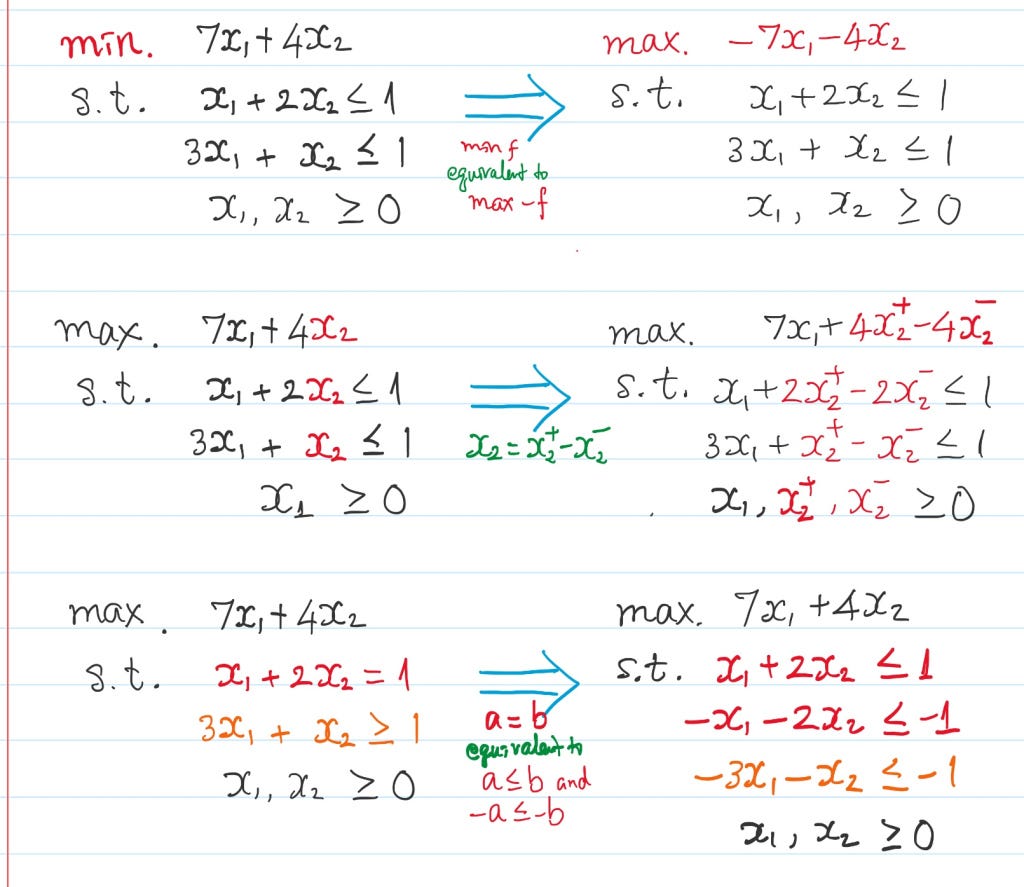 min. 7x₁ + 4x₂
s.t. x₁ + 2x₂ ≤ 1
3x₁ + x₂ ≤ 1
x₁, x₂ ≥ 0
⇒
min f
equivalent to
max -f
max. -7x₁ - 4x₂
s.t. x₁ + 2x₂ ≤ 1
3x₁ + x₂ ≤ 1
x₁, x₂ ≥ 0
max. 7x₁ + 4x₂
s.t. x₁ + 2x₂ ≤ 1
3x₁ + x₂ ≤ 1
x₁ ≥ 0
⇒
x₂ = x₂⁺ - x₂⁻
max. 7x₁ + 4x₂⁺ - 4x₂⁻
s.t. x₁ + 2x₂⁺ - 2x₂⁻ ≤ 1
3x₁ + x₂⁺ - x₂⁻ ≤ 1
x₁, x₂⁺, x₂⁻ ≥ 0
max. 7x₁ + 4x₂
s.t. x₁ + 2x₂ = 1
3x₁ + x₂ ≥ 1
x₁, x₂ ≥ 0
⇒
a = b
equivalent to
a ≤ b and
-a ≤ -b
max. 7x₁ + 4x₂
s.t. x₁ + 2x₂ ≤ 1
-x₁ - 2x₂ ≤ -1
-3x₁ - x₂ ≤ -1
x₁, x₂ ≥ 0